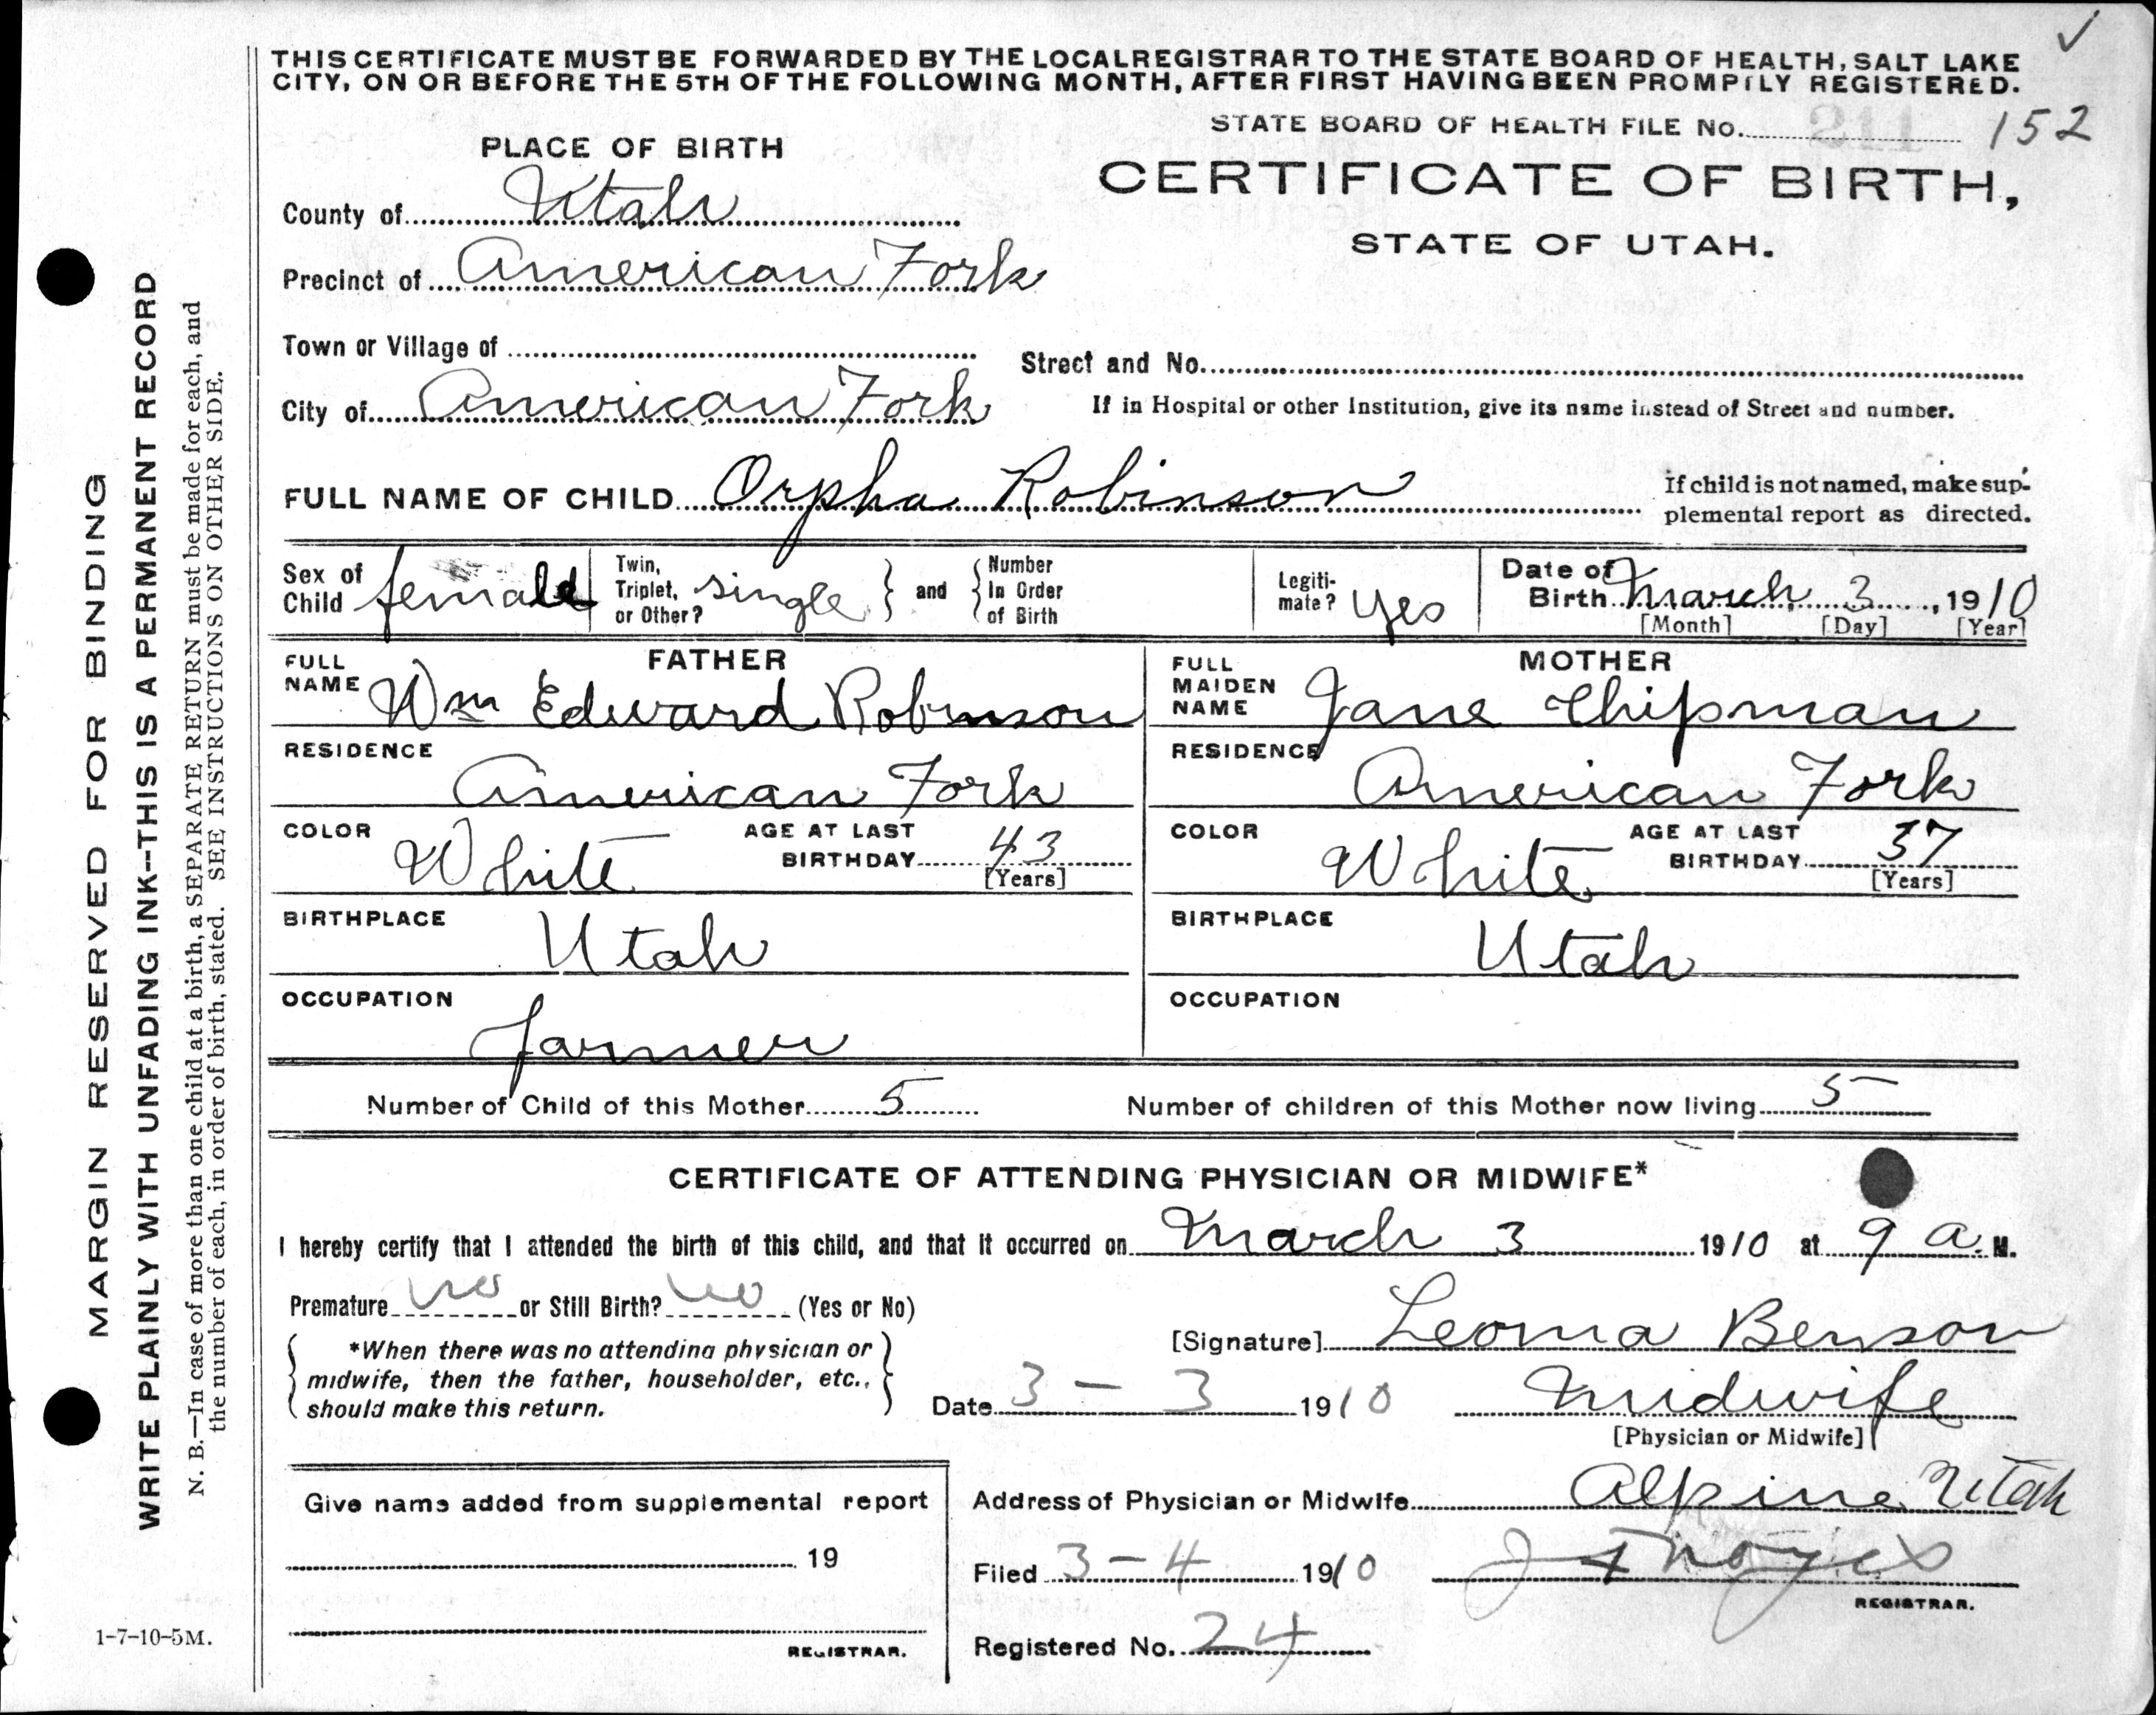 THIS CERTIFICATE MUST BE FORWARDED BY THE LOCAL REGISTRAR TO THE STATE BOARD OF HEALTH, SALT LAKE
CITY, ON OR BEFORE THE 5TH OF THE FOLLOWING MONTH, AFTER FIRST HAVING BEEN PROMPTLY REGISTERED.
STATE BOARD OF HEALTH FILE No. 152
PLACE OF BIRTH
CERTIFICATE OF BIRTH,
STATE OF UTAH.
County of Utah
Precinct of American Fork
Town or Village of
Street and No.
City of American Fork
If in Hospital or other Institution, give its name instead of Street and number.
FULL NAME OF CHILD Orpha Robinson
If child is not named, make sup-
plemental report as directed.
Sex of Child female
Twin, Triplet, or Other? single } and { Number In Order of Birth
Legiti-mate? Yes
Date of Birth March 3, 1910
[Month] [Day] [Year]
FATHER
FULL NAME Wm Edward Robinson
RESIDENCE
American Fork
COLOR White AGE AT LAST BIRTHDAY 43
[Years]
BIRTHPLACE
Utah
OCCUPATION
farmer
MOTHER
FULL MAIDEN NAME Jane Chipman
RESIDENCE
American Fork
COLOR White AGE AT LAST BIRTHDAY 37
[Years]
BIRTHPLACE
Utah
OCCUPATION
Number of Child of this Mother 5 Number of children of this Mother now living 5
CERTIFICATE OF ATTENDING PHYSICIAN OR MIDWIFE*
I hereby certify that I attended the birth of this child, and that it occurred on March 3 1910 at 9 a. M.
Premature no or Still Birth? no (Yes or No)
*When there was no attending physician or
midwife, then the father, householder, etc.,
should make this return.
[Signature] Leona Benson
Date 3 - 3 1910 Midwife
[Physician or Midwife]
Give name added from supplemental report
19
REGISTRAR.
Address of Physician or Midwife Alpine Utah
Filed 3-4 1910
REGISTRAR.
Registered No. 24
MARGIN RESERVED FOR BINDING
WRITE PLAINLY WITH UNFADING INK--THIS IS A PERMANENT RECORD
N. B.—In case of more than one child at a birth, a SEPARATE RETURN must be made for each, and
the number of each, in order of birth, stated. SEE INSTRUCTIONS ON OTHER SIDE.
1-7-10-5M.